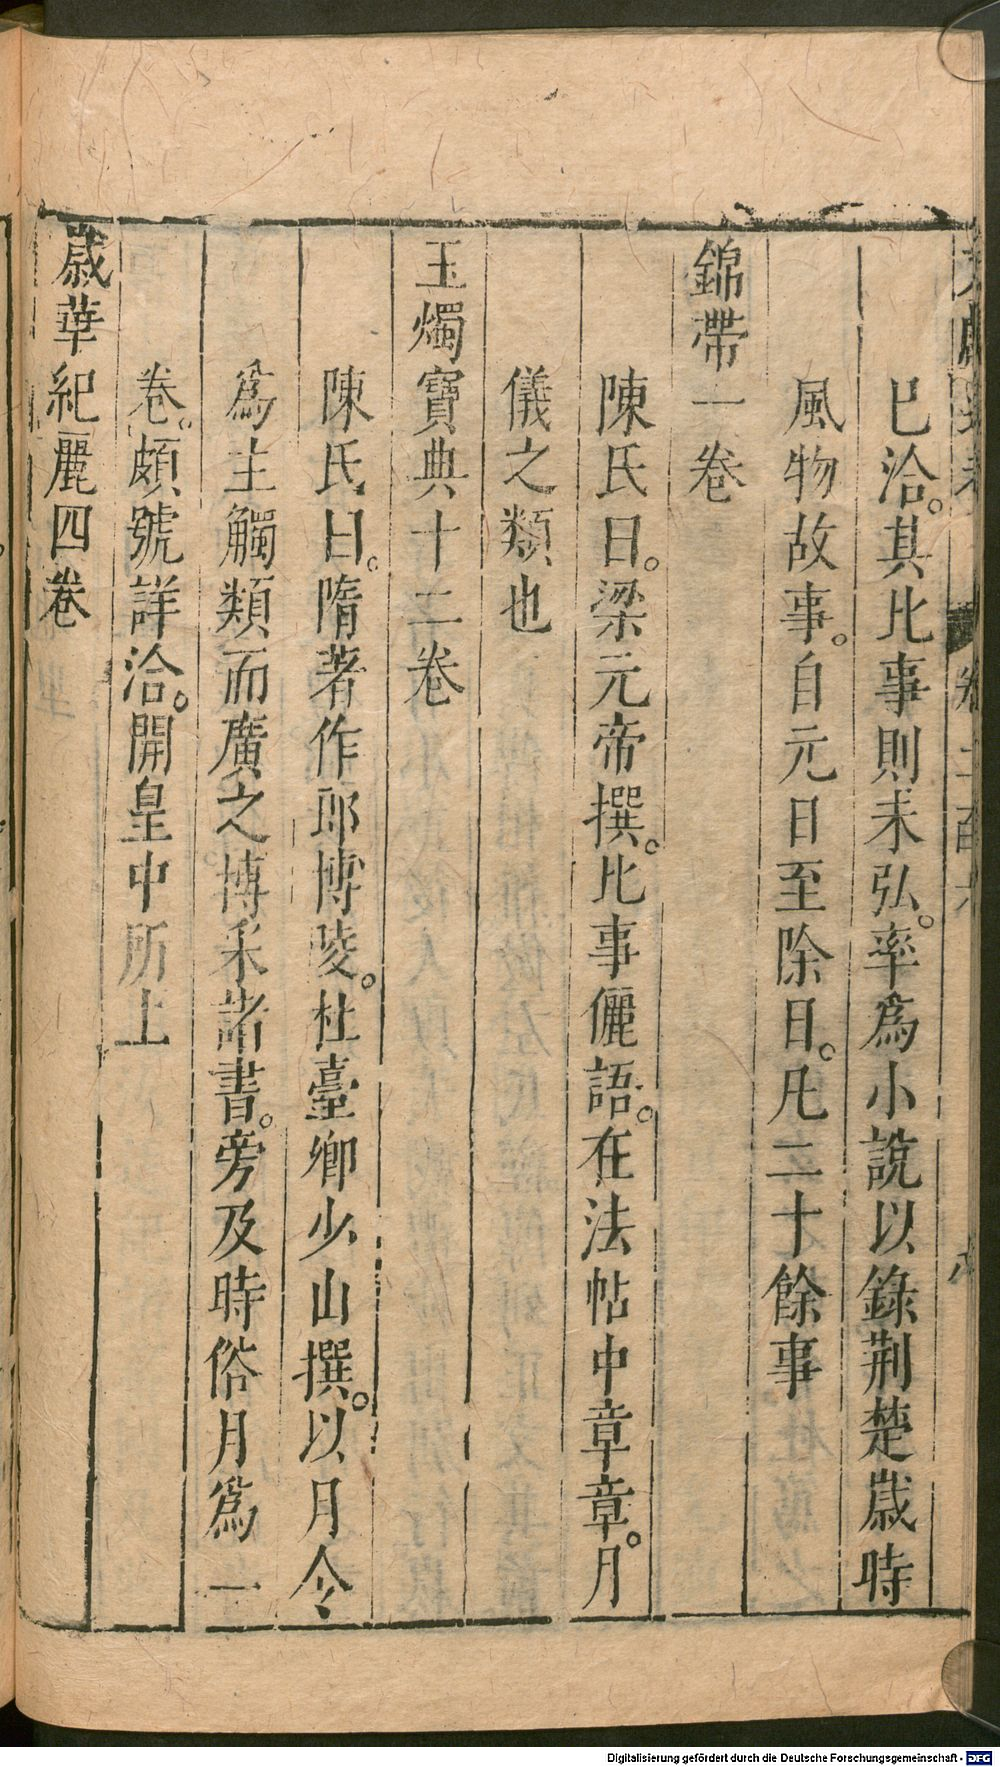 巳洽。其比事則未弘。率為小說以錄荆楚歲時
風物故事。自元日至除日。凡二十餘事
錦帶一卷
陳氏曰。梁元帝撰。比事儷語。在法帖中章章。月
儀之類也
玉燭寶典十二卷
陳氏曰。隋著作郎博陵。杜臺卿少山撰。以月令
爲主觸類而廣之博采諸書。旁及時俗月爲一
卷。頗號詳洽。開皇中所上
歲華紀麗四卷
Digitalisierung gefördert durch die Deutsche Forschungsgemeinschaft - DFG